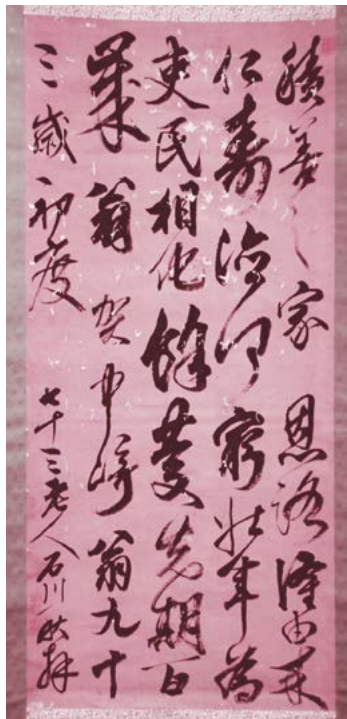 積善之家恩澤隆由来
仁壽德何窮壮年為
吏民相化餘慶先期百
歳翁 賀中崎翁九十
三歳初度 七十三老人石川拝